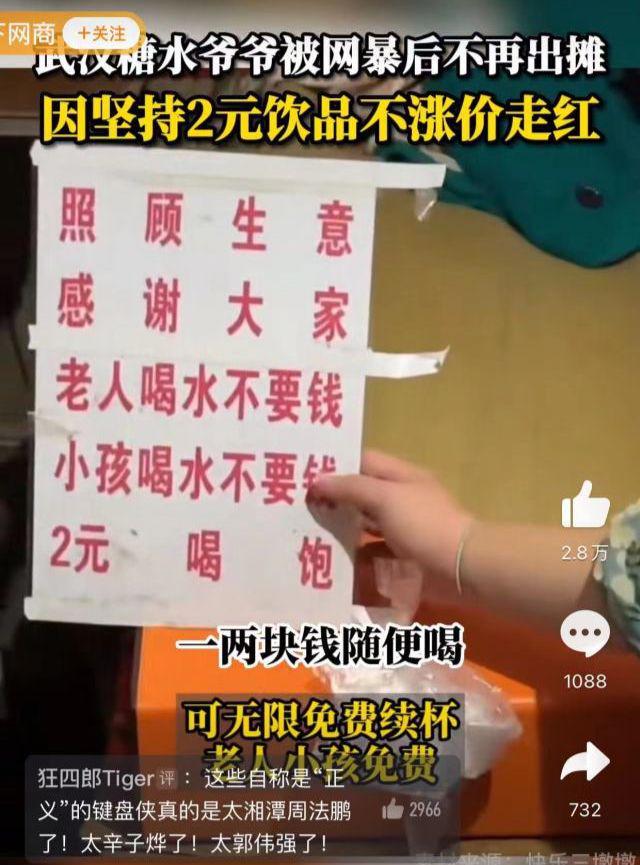 下网商 +关注
武汉糖水爷爷被网暴后不再出摊
因坚持2元饮品不涨价走红
照顾生意
感谢大家
老人喝水不要钱
小孩喝水不要钱
2元喝饱
一两块钱随便喝
可无限免费续杯
老人小孩免费
2.8万
1088
732
狂四郎Tiger评：这些自称是“正
义”的键盘侠真的是太湘潭周法鹏
了！太辛子烨了！太郭伟强了！
2966
素材来源：快乐三墩墩